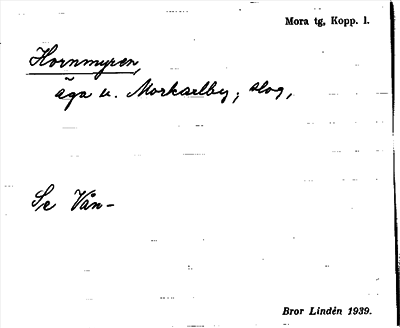 Mora tg, Kopp. l.
Hornmyren,
äga u. Morkarlby; slog,
Se Vån-
Bror Lindén 1939.